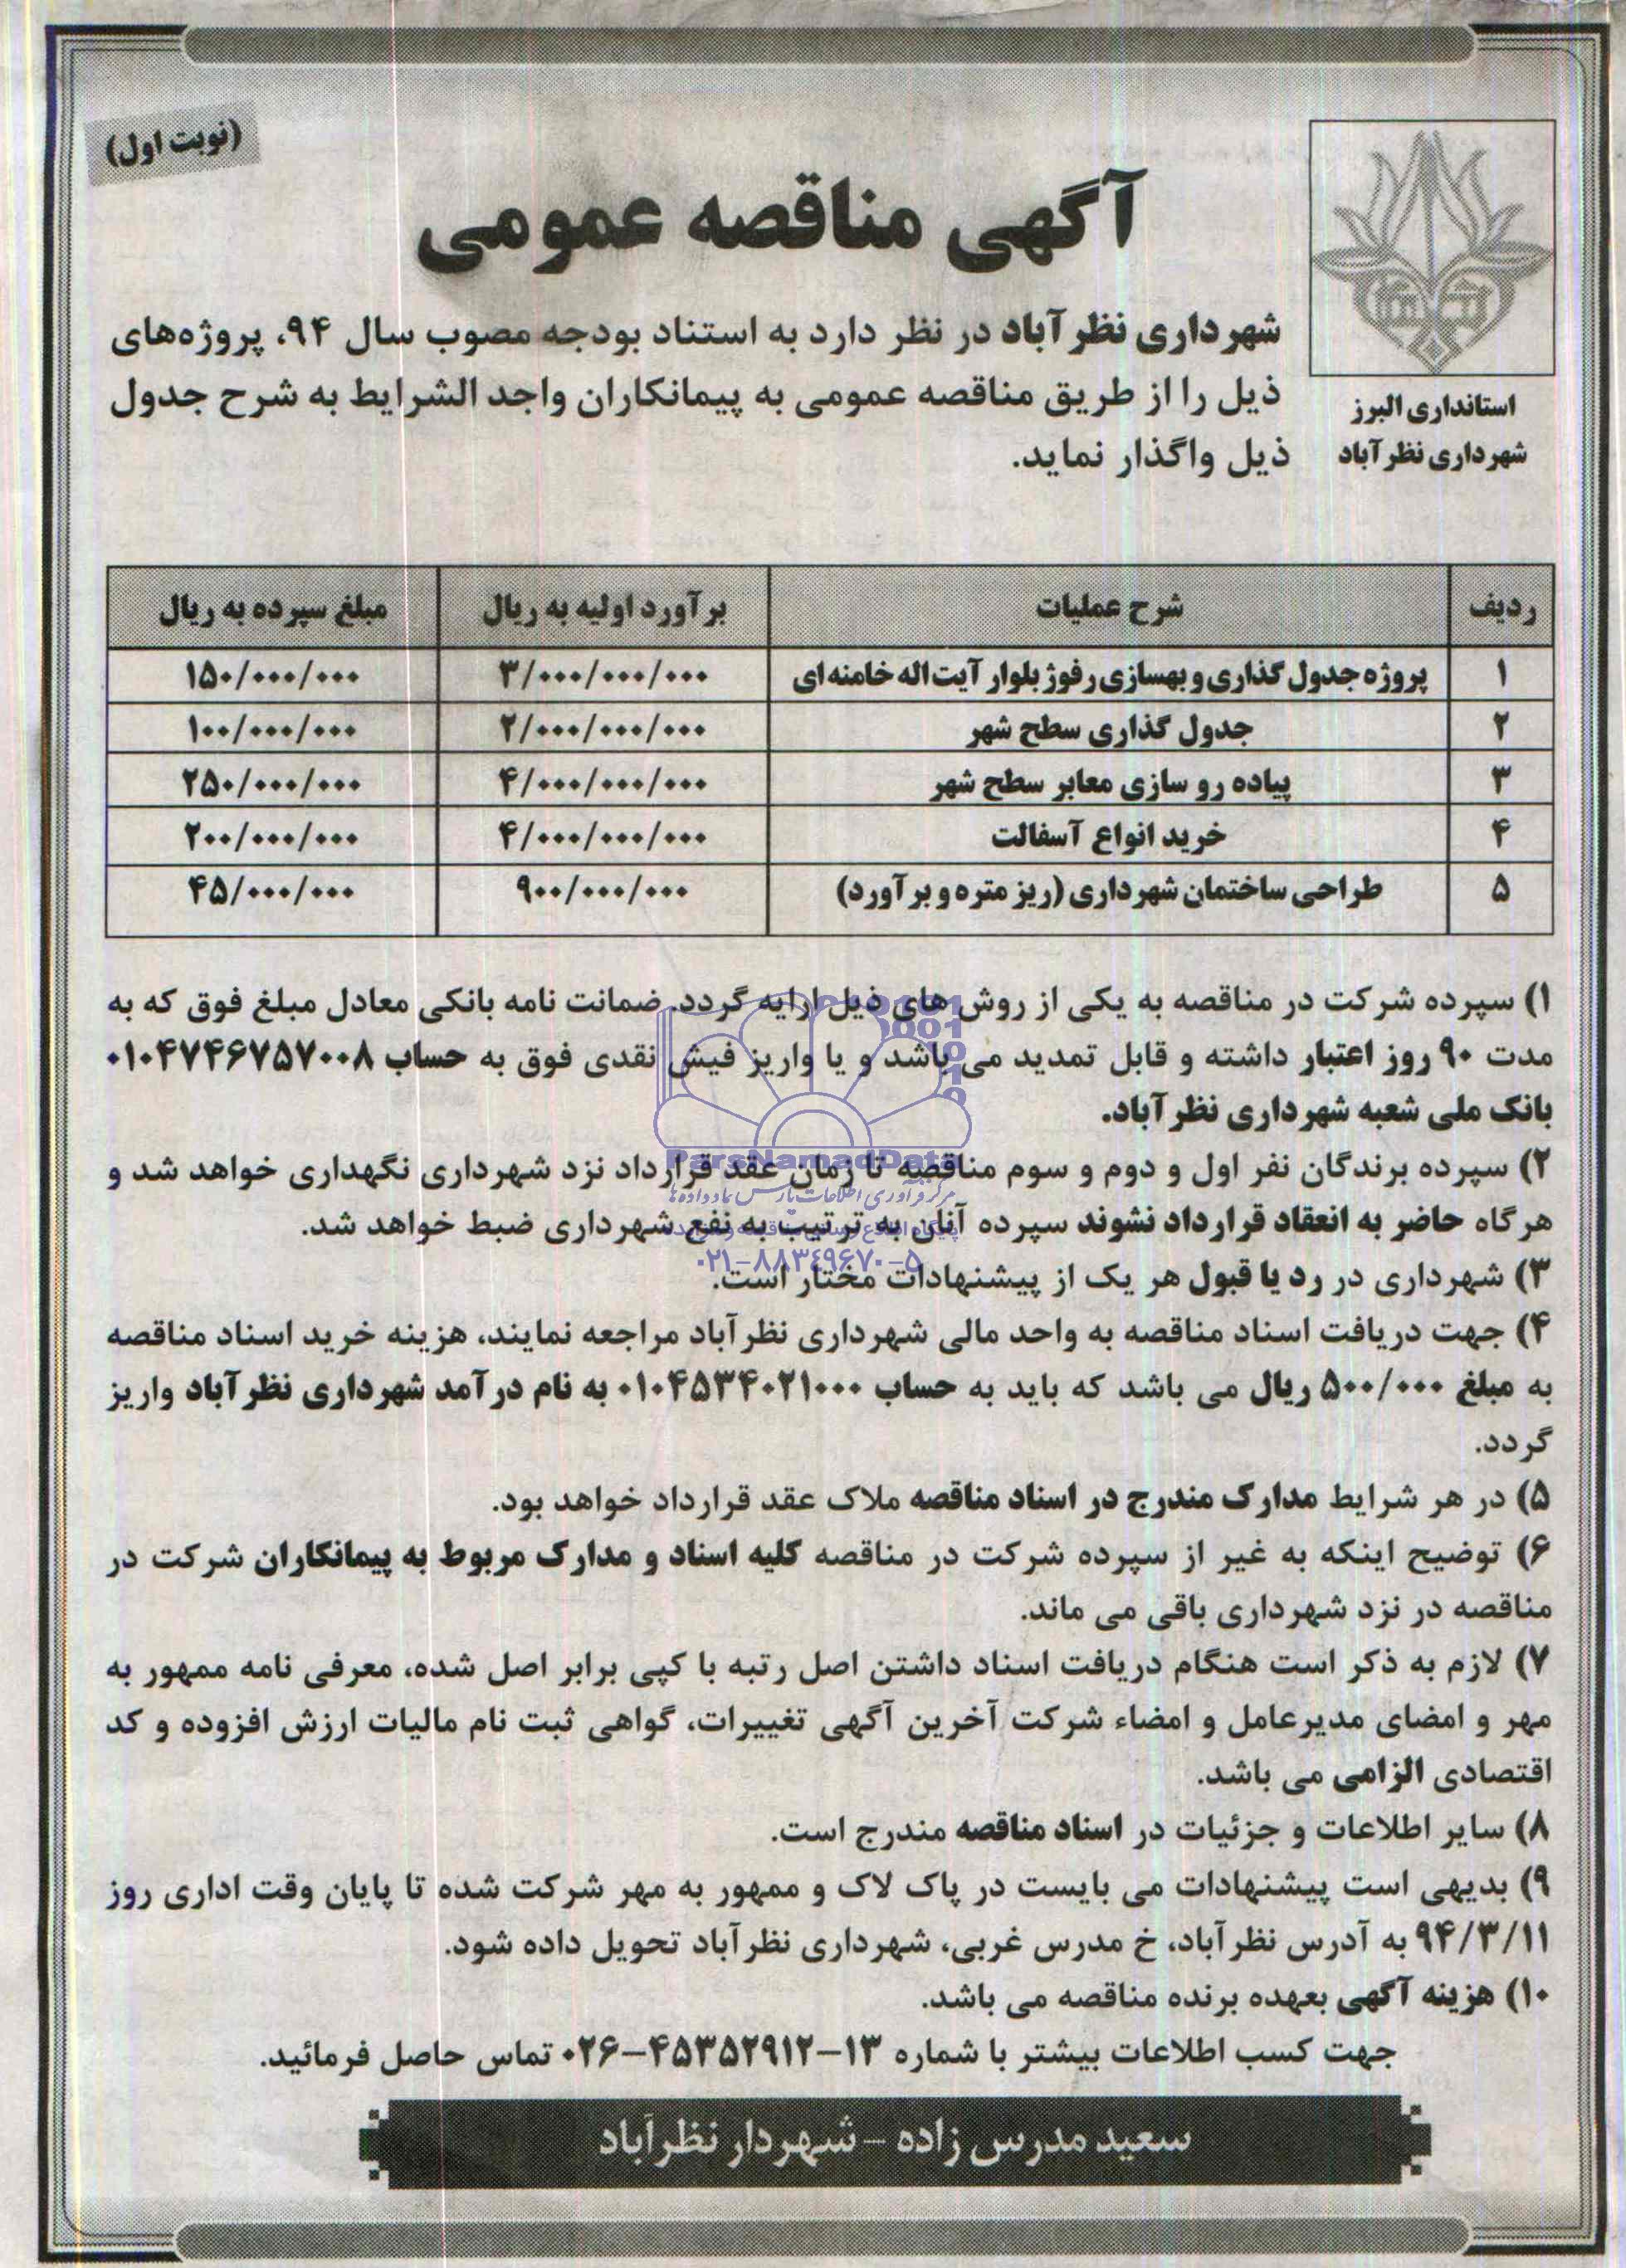 (نوبت اول)
آگهی مناقصه عمومی
استانداری البرز
شهرداری نظرآباد
شهرداری نظرآباد در نظر دارد به استناد بودجه مصوب سال ۹۴، پروژه‌های
ذیل را از طریق مناقصه عمومی به پیمانکاران واجد الشرایط به شرح جدول
ذیل واگذار نماید.
ردیف شرح عملیات برآورد اولیه به ریال مبلغ سپرده به ریال
۱ پروژه جدول گذاری و بهسازی رفوژ بلوار آیت اله خامنه ای ۳/۰۰۰/۰۰۰/۰۰۰ ۱۵۰/۰۰۰/۰۰۰
۲ جدول گذاری سطح شهر ۲/۰۰۰/۰۰۰/۰۰۰ ۱۰۰/۰۰۰/۰۰۰
۳ پیاده رو سازی معابر سطح شهر ۴/۰۰۰/۰۰۰/۰۰۰ ۲۵۰/۰۰۰/۰۰۰
۴ خرید انواع آسفالت ۴/۰۰۰/۰۰۰/۰۰۰ ۲۰۰/۰۰۰/۰۰۰
۵ طراحی ساختمان شهرداری (ریز متره و برآورد) ۹۰۰/۰۰۰/۰۰۰ ۴۵/۰۰۰/۰۰۰
۱) سپرده شرکت در مناقصه به یکی از روش های ذیل ارایه گردد. ضمانت نامه بانکی معادل مبلغ فوق که به
مدت ۹۰ روز اعتبار داشته و قابل تمدید می باشد و یا واریز فیش نقدی فوق به حساب ۰۱۰۴۷۴۶۷۵۷۰۰۸
بانک ملی شعبه شهرداری نظرآباد.
۲) سپرده برندگان نفر اول و دوم و سوم مناقصه تا زمان عقد قرارداد نزد شهرداری نگهداری خواهد شد و
هرگاه حاضر به انعقاد قرارداد نشوند سپرده آنان به ترتیب به نفع شهرداری ضبط خواهد شد.
۳) شهرداری در رد یا قبول هر یک از پیشنهادات مختار است.
۴) جهت دریافت اسناد مناقصه به واحد مالی شهرداری نظرآباد مراجعه نمایند، هزینه خرید اسناد مناقصه
به مبلغ ۵۰۰/۰۰۰ ریال می باشد که باید به حساب ۰۱۰۴۵۳۴۰۲۱۰۰۰ به نام درآمد شهرداری نظرآباد واریز
گردد.
۵) در هر شرایط مدارک مندرج در اسناد مناقصه ملاک عقد قرارداد خواهد بود.
۶) توضیح اینکه به غیر از سپرده شرکت در مناقصه کلیه اسناد و مدارک مربوط به پیمانکاران شرکت در
مناقصه در نزد شهرداری باقی می ماند.
۷) لازم به ذکر است هنگام دریافت اسناد داشتن اصل رتبه با کپی برابر اصل شده، معرفی نامه ممهور به
مهر و امضای مدیرعامل و امضاء شرکت آخرین آگهی تغییرات، گواهی ثبت نام مالیات ارزش افزوده و کد
اقتصادی الزامی می باشد.
۸) سایر اطلاعات و جزئیات در اسناد مناقصه مندرج است.
۹) بدیهی است پیشنهادات می بایست در پاک لاک و ممهور به مهر شرکت شده تا پایان وقت اداری روز
۹۴/۳/۱۱ به آدرس نظرآباد، خ مدرس غربی، شهرداری نظرآباد تحویل داده شود.
۱۰) هزینه آگهی بعهده برنده مناقصه می باشد.
جهت کسب اطلاعات بیشتر با شماره ۱۳-۰۲۶-۴۵۳۵۲۹۱۲ تماس حاصل فرمائید.
سعید مدرس زاده – شهردار نظرآباد
ParsNamadData
مرکز فرآوری اطلاعات پارس نماد داده ها
۰۲۱-۸۸۳۴۹۶۷۰-۵